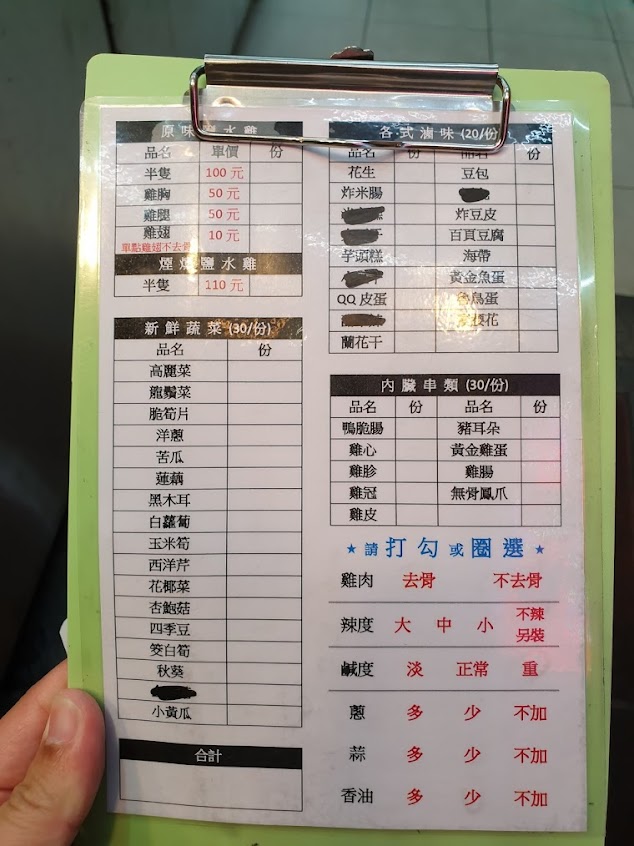 原味鹽水雞
品名 單價 份
半隻 100 元
雞胸 50 元
雞腿 50 元
雞翅 10 元
單點雞翅不去骨
煙燻鹽水雞
半隻 110 元
新鮮蔬菜 (30/份)
品名 份
高麗菜
龍鬚菜
脆筍片
洋蔥
苦瓜
蓮藕
黑木耳
白蘿蔔
玉米筍
西洋芹
花椰菜
杏鮑菇
四季豆
筊白筍
秋葵
小黃瓜
合計
各式滷味 (20/份)
品名 份 品名 份
花生 豆包
炸米腸
炸豆皮
百頁豆腐
芋頭糕 海帶
黃金魚蛋
QQ 皮蛋 鳥蛋
花
蘭花干
內臟串類 (30/份)
品名 份 品名 份
鴨脆腸 豬耳朵
雞心 黃金雞蛋
雞胗 雞腸
雞冠 無骨鳳爪
雞皮
★ 請 打 勾 或 圈 選 ★
雞肉 去骨 不去骨
辣度 大 中 小 不辣另裝
鹹度 淡 正常 重
蔥 多 少 不加
蒜 多 少 不加
香油 多 少 不加